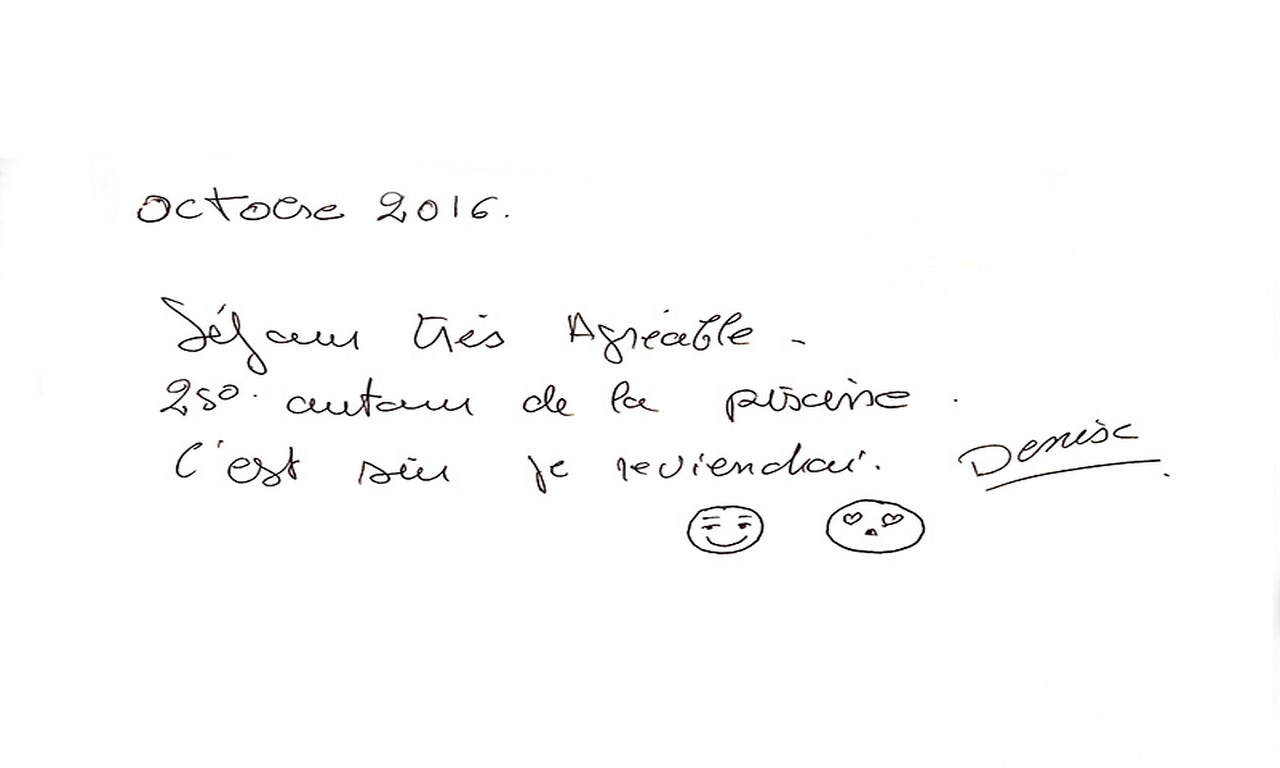 octobre 2016.
Séjour très Agréable -
25° autour de la piscine.
C'est sûr je reviendrai. Denise.